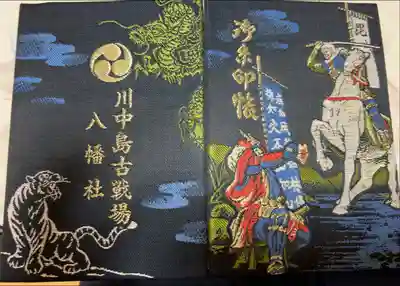 毘
御朱印帳
川中島古戦場
八幡社